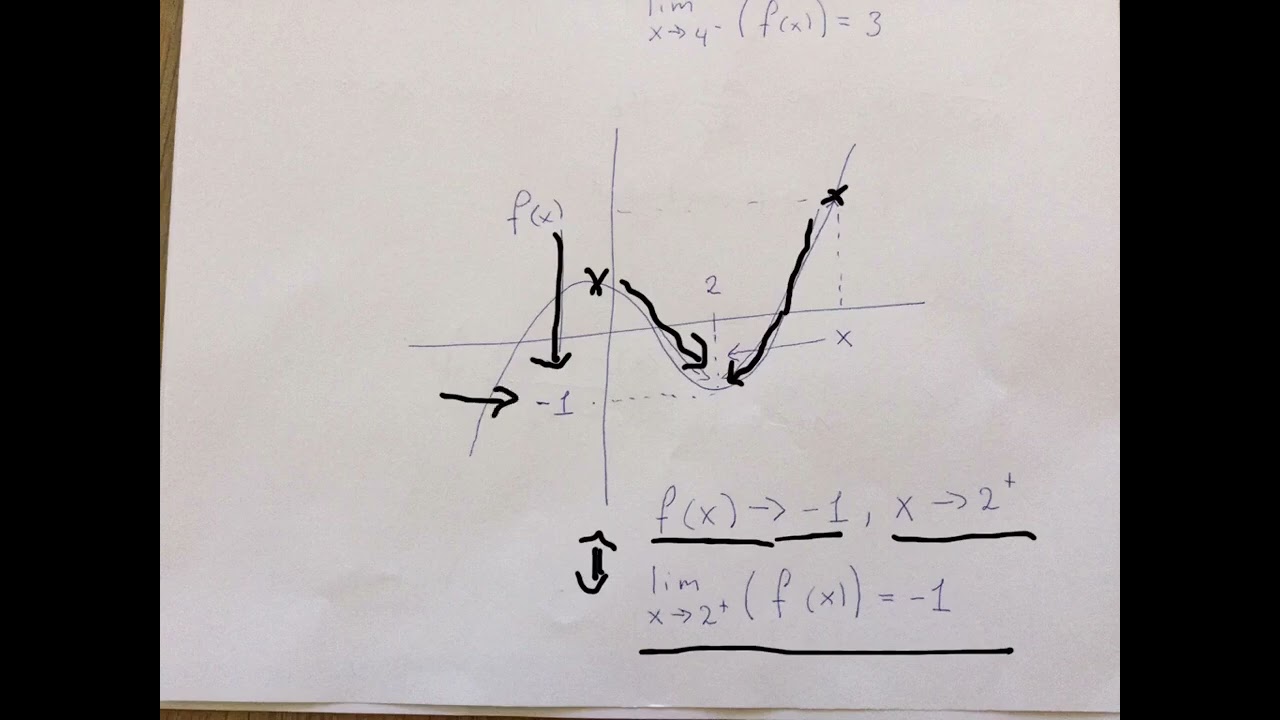 lim
x→4⁻ (f(x)) = 3
f(x)
2
x
-1
f(x) → -1, x → 2⁺
lim
x→2⁺ (f(x)) = -1